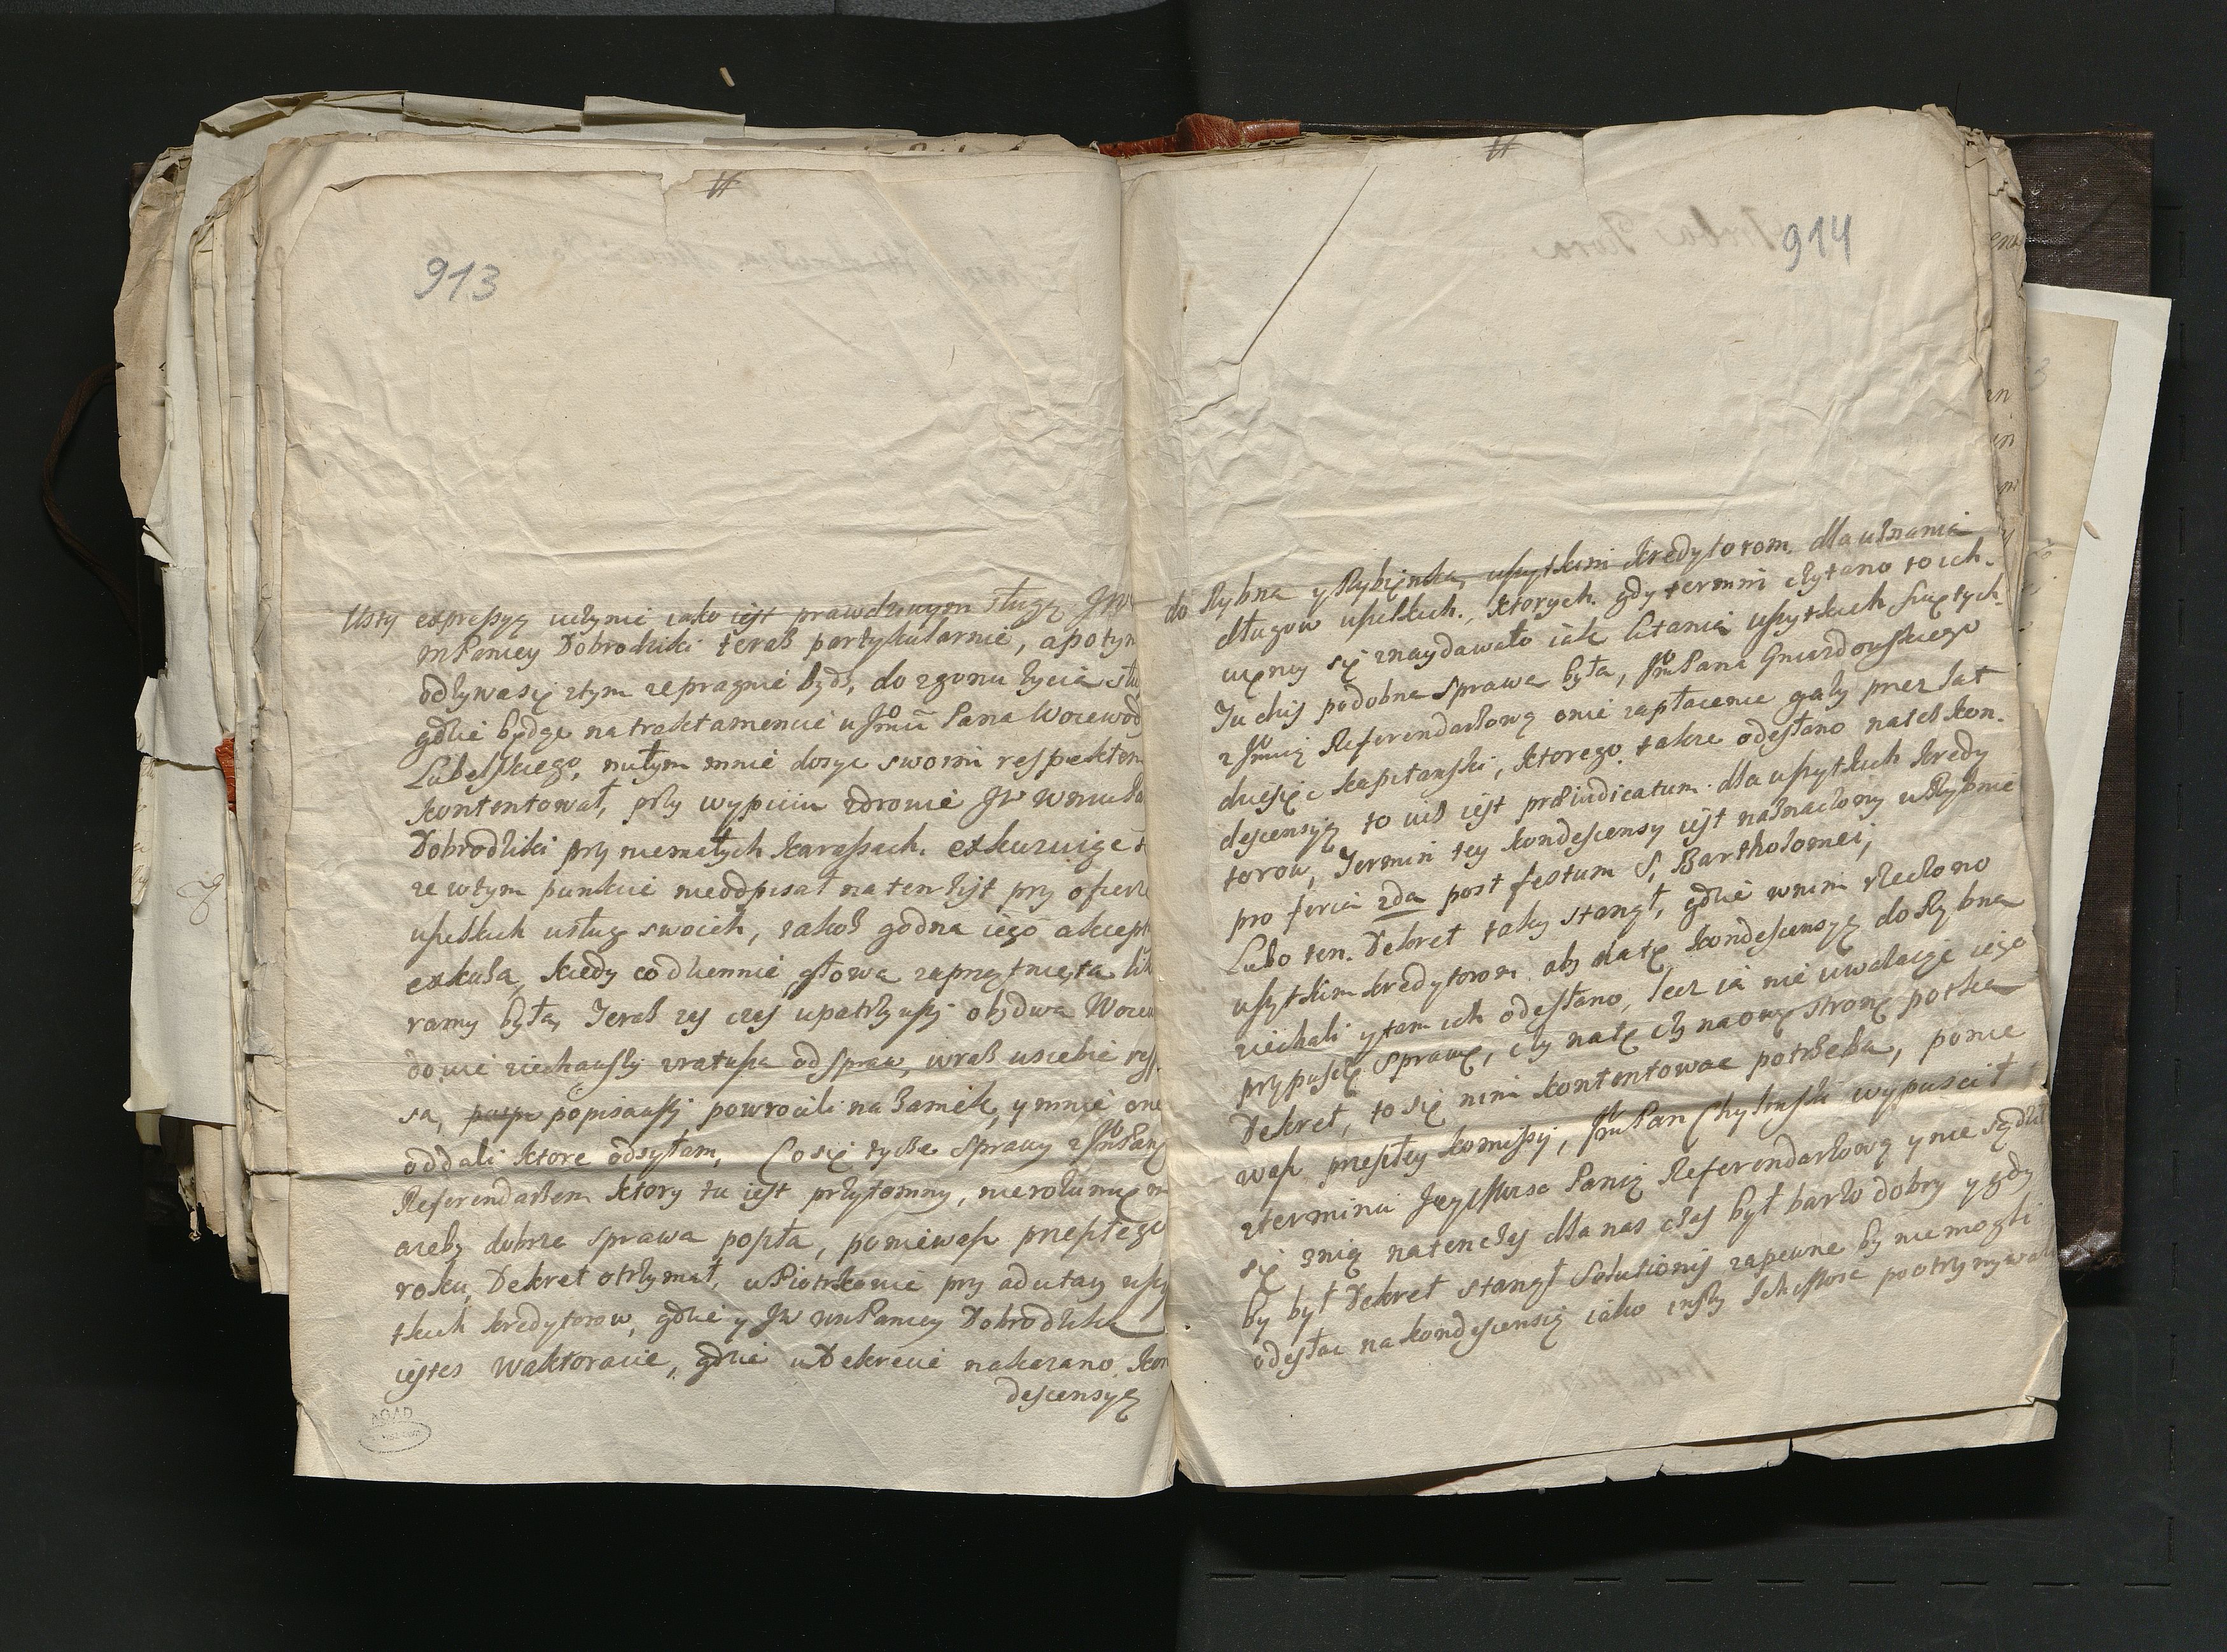 913
usty expressyą uczynić iako iest prawdziwym sługą JW
mPaniey Dobrodziki teraz partykularnie, a potym
odzywa się ztym ze pragnie bydz, do zgonu życia
gdzie będąc na traktamencie u Jmci Pana Woiewod
Lubelskiego, mnie dosyc swoim respektem
kontentował, przy wypiciu zdrowie JW
Dobrodziki przy niemałych karassach. exkuzuiąc
ze wtym punkcie nieodpisał na ten list przy ofierze
wszelkich usług swoich, iakoz godna iego akcept
exkuza, kiedy codziennie głowa zaprzątnięta
ramy była, Teraz zas czas upatrzywszy obydwa Woiew
dowie ziechawszy zratusza od spraw, wraz usiebie
sa, popisawszy, powrocili na Zamek, y mnie one
oddali ktore odsyłam, Co się tycze sprawy z JmPanem
Referendarzem ktory tu iest przytomny, nierozumię
azeby dobrze sprawa poszła, poniewasz przeszłego
roku, Dekret otrzymał, w Piotrkowie przy adcitacy wszy
tkich kredytorow, gdzie y JW mPaniey Dobrodzika
iestes waktoracie, gdzie w Dekrecie nakazano Kon
descensyą
914
do Rybna y Rybięnka, wszytkim kredytorom. dla uznania
długow wszelkich., ktorych. gdy termin czytano to ich.
więcey się znaydawało iak Litania wszytkich Swiętych.
Tuchij podobna sprawa była, Jm Pana Gniazdowskiego
z Jmcią Referendarzową onie zapłacenie gazy przez lat
dziesięc kapitanski, ktorego. takze odesłano nateż kon.
descensyą to iusz iest præiudicatum. dla wszytkich kredy
torow, Termin tey kondescensy iest naznaczony w Rybnie
pro feria 2da post festum S, Bartholomei,
Lubo ten. Dekret taky stanął, gdzie wnim rzeczono
wszytkim kredytorom aby natę kondescensyą do Rybna
ziechali y tam ich odesłano, lecz ia nie uwalaiąc iego
przypuszcę sprawę, czy natę czy na owę stronę potka
Dekret, to się nim kontentowac potrzeba, ponie
wasz przeszłey komissyj, Jm Pan Chylinski wypuscił
zterminu Jeymsc Panią Referendarzową y nie sądził
się znią natenczas dla nas czas był barzo dobry y gdy
by był Dekret stanął Solutionis zapewne by nie mogli
odesłac na kondescensią iako inszy Ichmsc pootrzymywali